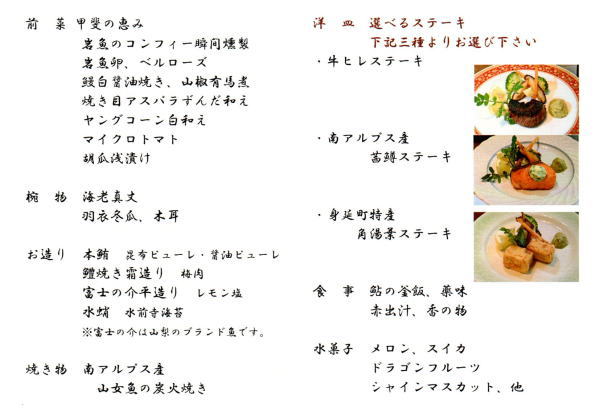 前 菜 甲斐の恵み
岩魚のコンフィー瞬間燻製
岩魚卵、ベルローズ
鰻白醤油焼き、山椒有馬煮
焼き目アスパラずんだ和え
ヤングコーン白和え
マイクロトマト
胡瓜浅漬け
椀 物 海老真丈
羽衣冬瓜、木耳
お造り 本鮪 昆布ピューレ・醤油ピューレ
鱧焼き霜造り 梅肉
富士の介平造り レモン塩
水蛸 水前寺海苔
※富士の介は山梨のブランド魚です。
焼き物 南アルプス産
山女魚の炭火焼き
洋 皿 選べるステーキ
下記三種よりお選び下さい
・牛ヒレステーキ
・南アルプス産
茜鱒ステーキ
・身延町特産
角湯葉ステーキ
食 事 鮎の釜飯、薬味
赤出汁、香の物
水菓子 メロン、スイカ
ドラゴンフルーツ
シャインマスカット、他